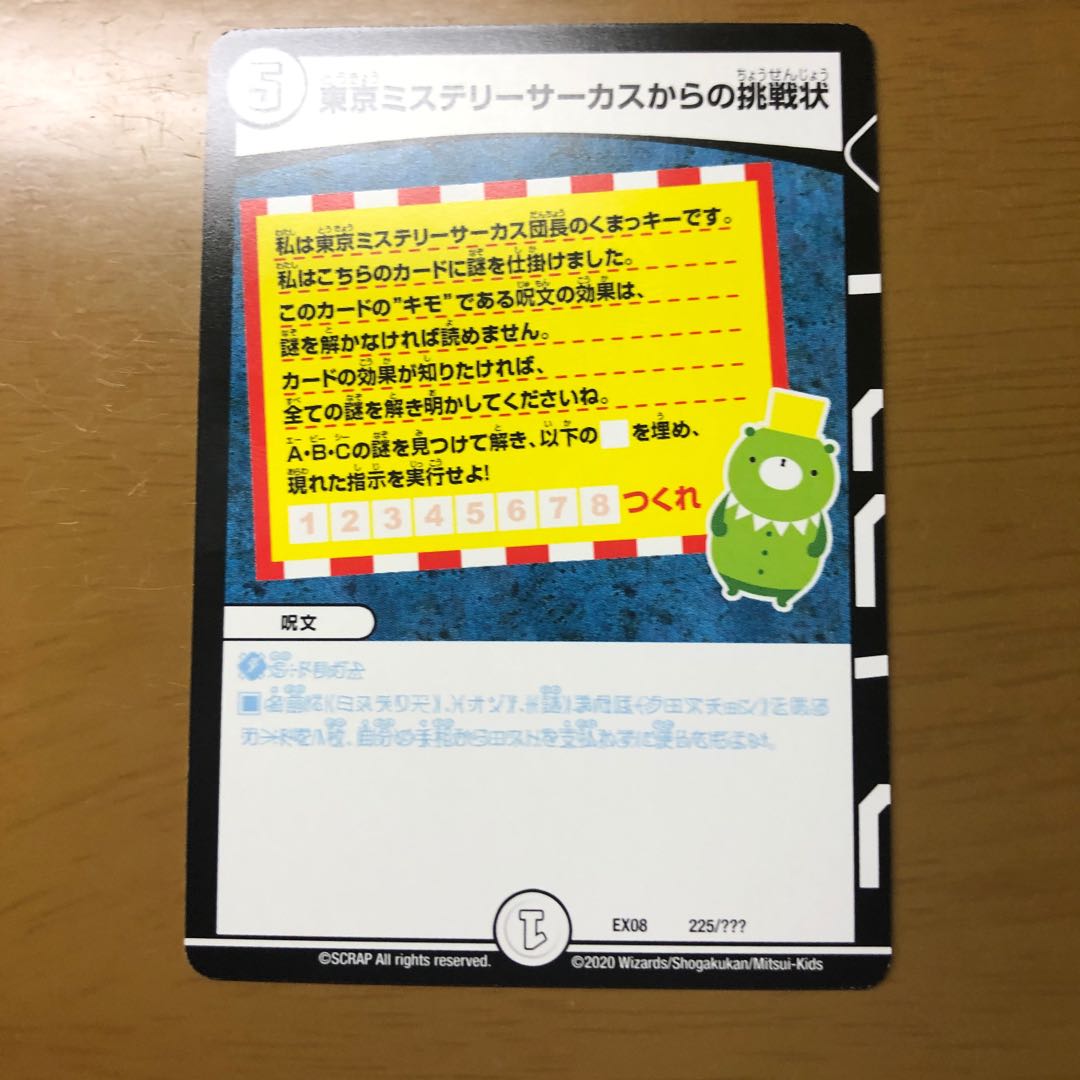 5
東京ミステリーサーカスからの挑戦状
私は東京ミステリーサーカス団長のくまっキーです。
私はこちらのカードに謎を仕掛けました。
このカードの"キモ"である呪文の効果は、
謎を解かなければ読めません。
カードの効果が知りたければ、
全ての謎を解き明かしてくださいね。
A・B・Cの謎を見つけて解き、以下の を埋め、
現れた指示を実行せよ!
1 2 3 4 5 6 7 8 つくれ
呪文
EX08 225/???
©SCRAP All rights reserved. ©2020 Wizards/Shogakukan/Mitsui-Kids